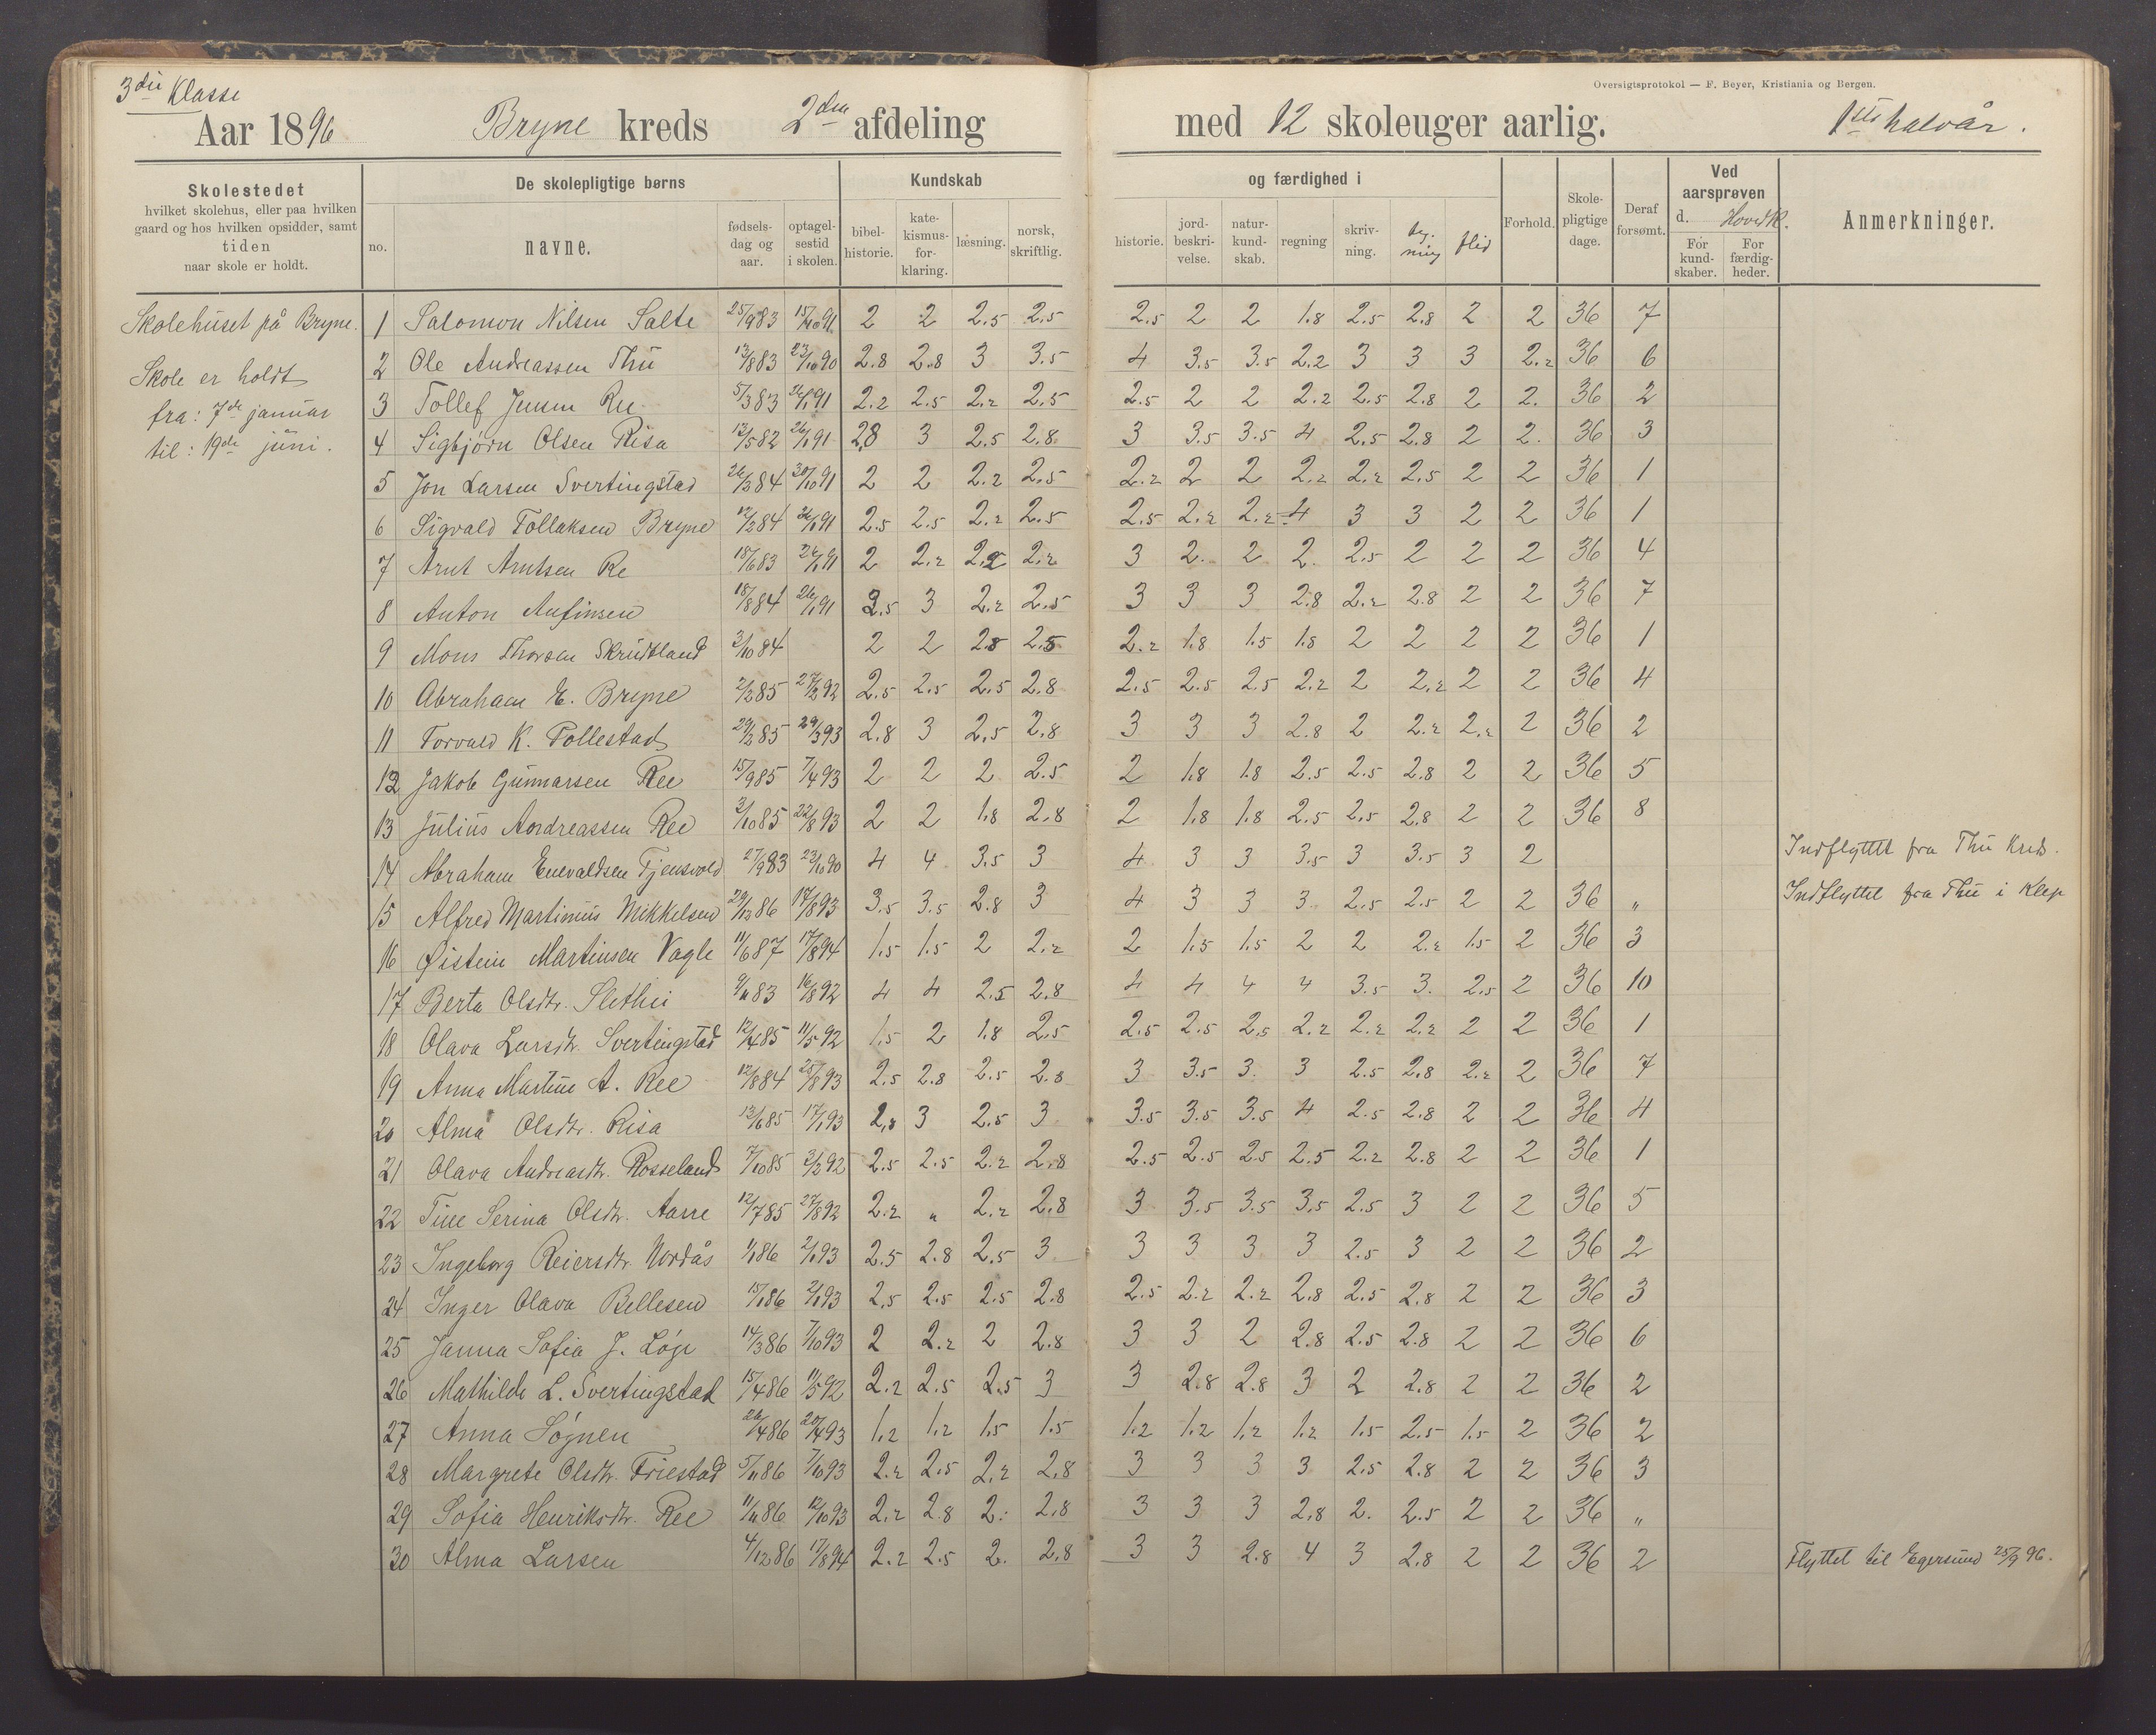 3die Klasse
Oversigtsprotokol — F. Beyer, Kristiania og Bergen.
Aar 1896 Bryne kreds 2den afdeling med 12 skoleuger aarlig. 1ste halvår.
Skolestedet hvilket skolehus, eller paa hvilken gaard og hos hvilken opsidder, samt tiden naar skole er holdt.
De skolepligtige børns
no. navne. fødselsdag og aar. optagelsestid i skolen.
Kundskab og færdighed i
bibelhistorie. katekismusforklaring. læsning. norsk, skriftlig. historie. jordbeskrivelse. naturkundskab. regning skrivning. tegning flid
Forhold. Skolepligtige dage. Deraf forsømt. Ved aarsprøven d. For kundskaber. For færdigheder. Anmerkninger.
Skolehuset på Bryne.
Skole er holdt
fra: 7de januar
til: 19de juni.
1 Salomon Nilsen Salte 25/9 83 15/10 91 2 2 2.5 2.5 2.5 2 2 1.8 2.5 2.8 2 2 36 7
2 Ole Andreassen Thu 13/8 83 23/10 90 2.8 2.8 3 3.5 4 3.5 3.5 2.2 3 3 3 2.2 36 6
3 Tollef Jensen Ree 5/3 83 26/1 91 2.2 2.5 2.2 2.5 2.5 2 2 2.2 2.5 2.8 2 2. 36 2
4 Sigbjørn Olsen Risa 12/5 82 26/1 91 2.8 3 2.5 2.8 3 3.5 3.5 4 2.5 2.8 2 2. 36 3
5 Jon Larsen Svertingstad 26/3 84 30/10 91 2 2 2.2 2.5 2.2 2 2 2.2 2.2 2.5 2 2 36 1
6 Sigvald Tollaksen Bryne 12/2 84 26/1 91 2.5 2.5 2.2 2.5 2.5 2.2 2.2 4 3 3 2 2 36 1
7 Arnt Arntsen Re 18/6 83 26/1 91 2 2.2 2.2 2.2 3 2. 2 2. 2.5 2 2 2 36 4
8 Anton Anfinsen 18/8 84 26/1 91 2.5 3 2.2 2.5 3 3 3 2.8 2.2 2.8 2 2 36 7
9 Mons Thorsen Skrudland 3/10 84 2 2 2.8 2.5 2.2 1.8 1.5 1.8 2 2 2 2 36 1
10 Abraham E. Bryne 2/2 85 27/2 92 2.5 2.5 2.5 2.8 2.5 2.5 2.5 2.2 2 2.2 2 2 36 4
11 Torvald K. Tollestad 29/2 85 29/3 93 2.8 3 2.5 2.8 3 3 3 2.8 2 2.2 2.2 2 36 2
12 Jakob Gunnarsen Ree 15/9 85 7/4 93 2 2 2 2.5 2 1.8 1.8 2.5 2.5 2.8 2 2 36 5
13 Julius Andreassen Ree 3/10 85 22/8 93 2 2 1.8 2.8 2 1.8 1.8 2.5 2.5 2.8 2 2 36 8
14 Abraham Enevaldsen Tjensvold 27/9 83 23/10 90 4 4 3.5 3 4 3 3 3.5 3 3.5 3 2 Indflyttet fra Thu Kreds.
15 Alfred Martinius Mikkelsen 29/12 86 17/8 93 3.5 3.5 2.8 3 4 3 3 3 2.5 2.5 2 2 36 " Indflyttet fra Thu i Klep
16 Øistein Martinsen Vagle 11/6 87 17/8 94 1.5 1.5 2 2.2 2 1.5 1.5 2 2 2.2 1.5 2 36 3
17 Berta Olsdtr. Slethei 9/11 83 16/8 92 4 4 2.5 2.8 4 4 4 4 3.5 3. 2.5 2 36 10
18 Olava Larsdtr. Svertingstad 12/4 85 11/5 92 1.5 2 1.8 2.5 2.5 2.5 2.5 2.2 2.2 2.2 2 2 36 1
19 Anna Martine A. Ree 12/8 84 25/8 93 2.5 2.8 2.5 2.8 3 3.5 3 3 2.5 2.8 2.2 2 36 7
20 Alma Olsdtr. Risa 13/6 85 17/1 93 2.8 3 2.5 3 3.5 3.5 3.5 4 2.5 2.8 2 2 36 4
21 Olava Andreasdtr. Rosseland 7/10 85 3/2 92 2.5 2.5 2.2 2.8 2.5 2.5 2.5 2.5 2.2 2.8 2 2 36 1
22 Tine Serina Olsdtr. Aarre 12/7 85 27/8 92 2.2 " 2.2 2.8 3 3.5 3.5 3.5 2.5 3 2 2 36 5
23 Ingeborg Reiersdtr. Nordås 1/1 86 2/1 93 2.5 2.8 2.5 3 3 3 3 3 2.5 3 2 2 36 2
24 Inger Olava Bellesen 15/1 86 2/1 93 2.5 2.5 2.5 2.8 2.5 2.2 2.2 2.8 2.5 2.8 2 2 36 3
25 Janna Sofia J. Løge 14/3 86 7/10 93 2 2.2 2 2.8 3 3 2 2.8 2.5 2.8 2 2 36 6
26 Mathilde L. Svertingstad 15/4 86 11/5 92 2.2 2.5 2.5 3 3 2.8 2.8 3 2 2.8 2 2 36 2
27 Anna Søgnen 26/4 86 20/4 93 1.2 1.2 1.5 1.5 1.2 1.2 1.2 1.2 1.5 2.5 1.5 2 36 2
28 Margrete Olsdtr. Friestad 5/11 86 7/10 93 2.2 2.5 2.2 2.8 3 3 3 3 2.5 2.8 2 2 36 3
29 Sofia Henriksdtr. Ree 11/11 86 12/10 93 2.2 2.8 2. 2.8 3 3 3 2.8 2. 2.5 2 2 36 "
30 Alma Larsen 4/12 86 17/8 94 2.2 2.5 2. 2.8 3 3 2.8 4 3 2.8 2 2 36 2 Flyttet til Egersund 25/9 96.